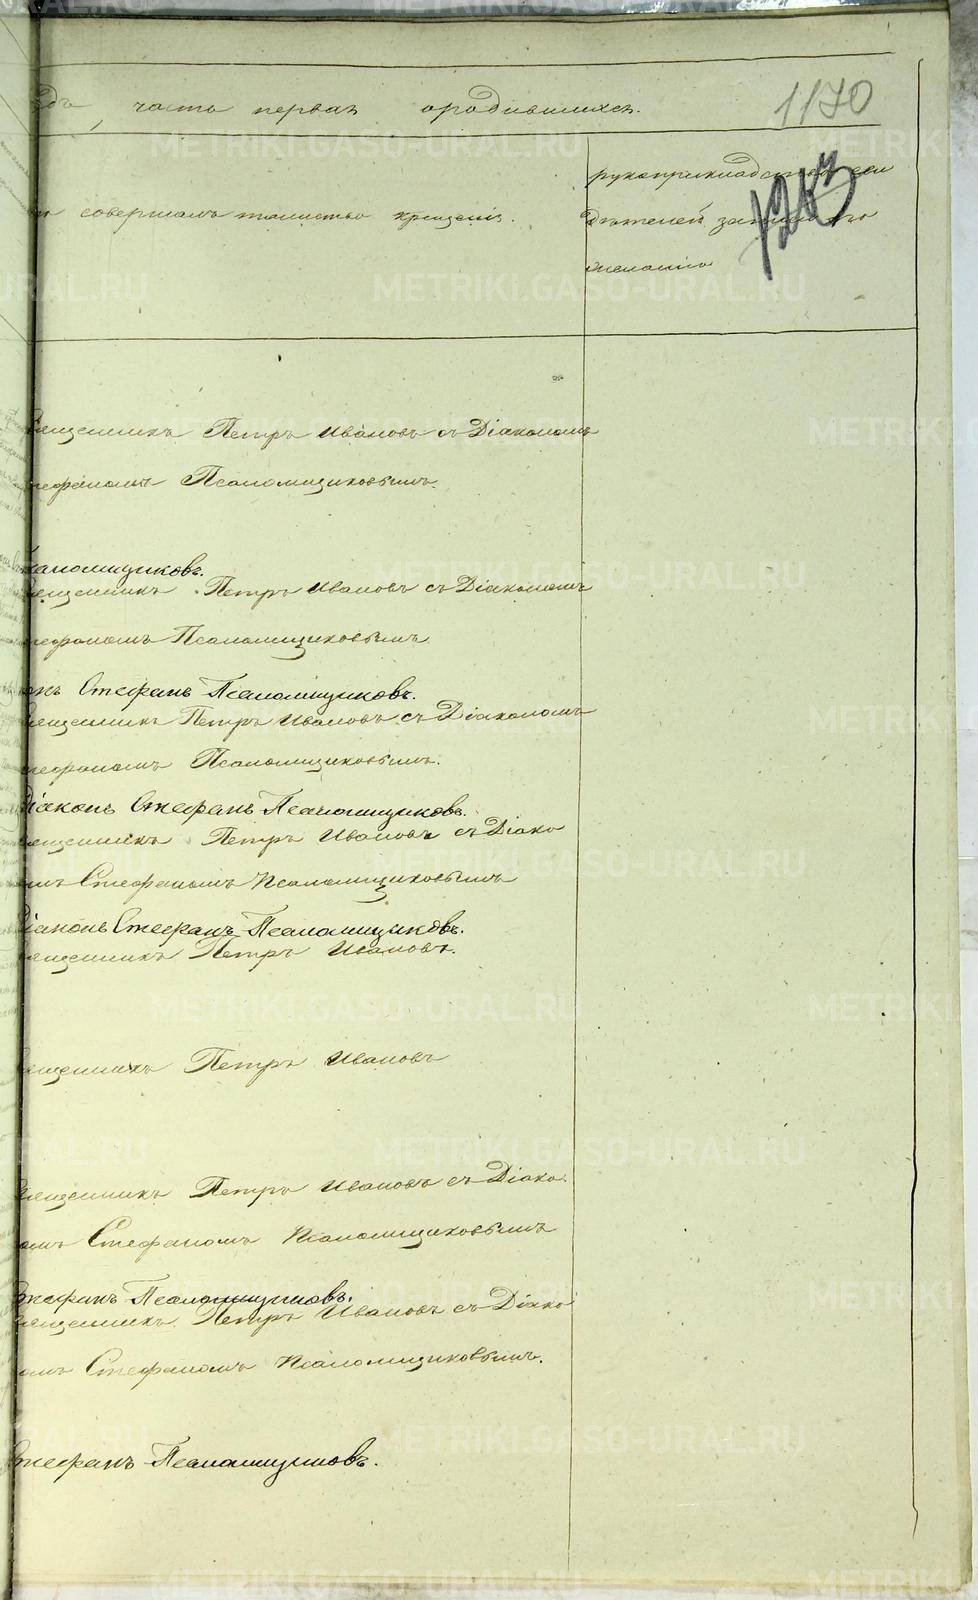 одъ, часть первая ородившихся. 1170
то совершалъ таинство крещенія.
рукоприкладство сви
дѣтелей записи по
желанію
1283
Священникъ Петръ Ивановъ съ Діакономъ
тефаномъ Псаломщиковымъ.
саломщиковъ.
вященникъ Петръ Ивановъ съ Діакономъ
тефаномъ Псаломщиковымъ
онъ Стефанъ Псаломщиковъ.
вященникъ Петръ Ивановъ съ Діакономъ
тефаномъ Псаломщиковымъ.
Діаконъ Стефанъ Псаломщиковъ.
вященникъ Петръ Ивановъ съ Діако
омъ Стефаномъ Псаломщиковымъ
Діаконъ Стефанъ Псаломщиковъ.
вященникъ Петръ Ивановъ.
вященникъ Петръ Ивановъ
вященникъ Петръ Ивановъ съ Діако
омъ Стефаномъ Псаломщиковымъ
Стефанъ Псаломщиковъ.
вященникъ Петръ Ивановъ съ Діако
омъ Стефаномъ Псаломщиковымъ.
Стефанъ Псаломщиковъ.
METRIKI.GASO-URAL.RU